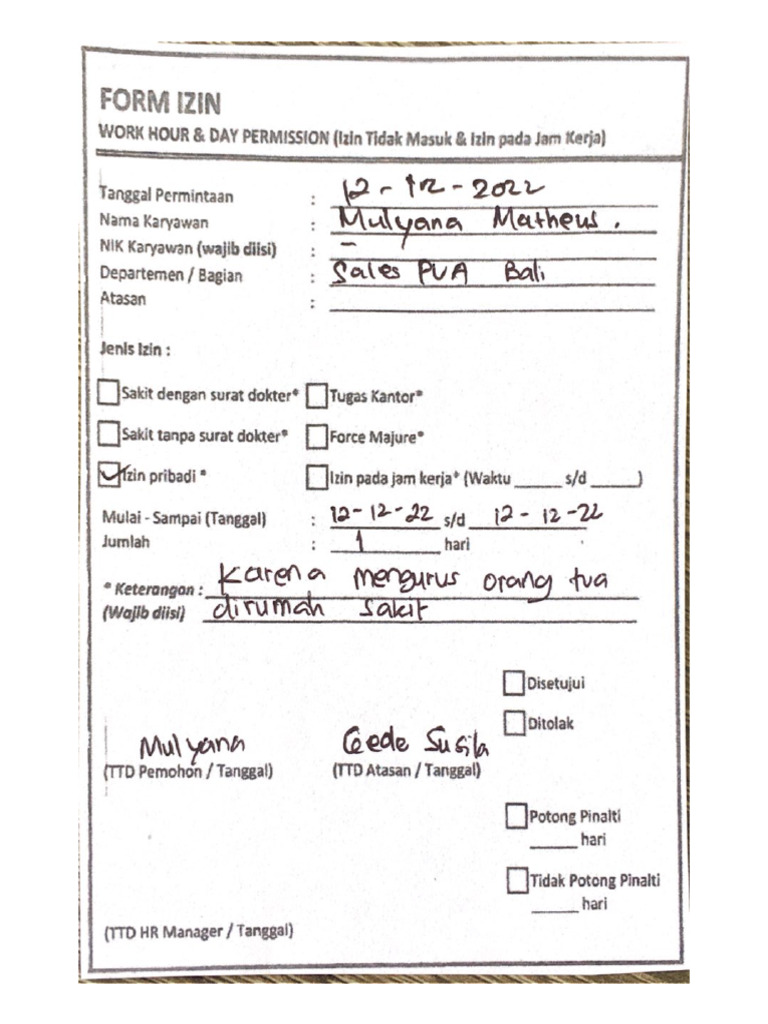 FORM IZIN
WORK HOUR & DAY PERMISSION (Izin Tidak Masuk & Izin pada Jam Kerja)
Tanggal Permintaan : 12-12-2022
Nama Karyawan : Mulyana Matheus.
NIK Karyawan (wajib diisi) : -
Departemen / Bagian : Sales PVA Bali
Atasan :
Jenis Izin :
Sakit dengan surat dokter* Tugas Kantor*
Sakit tanpa surat dokter* Force Majure*
Izin pribadi * Izin pada jam kerja* (Waktu ______ s/d _____)
Mulai - Sampai (Tanggal) : 12-12-22 s/d 12-12-22
Jumlah : 1 hari
* Keterangan : Karena mengurus orang tua
(Wajib diisi) dirumah sakit
Disetujui
Ditolak
Mulyana Gede Susila
(TTD Pemohon / Tanggal) (TTD Atasan / Tanggal)
Potong Pinalti
_____ hari
Tidak Potong Pinalti
_____ hari
(TTD HR Manager / Tanggal)